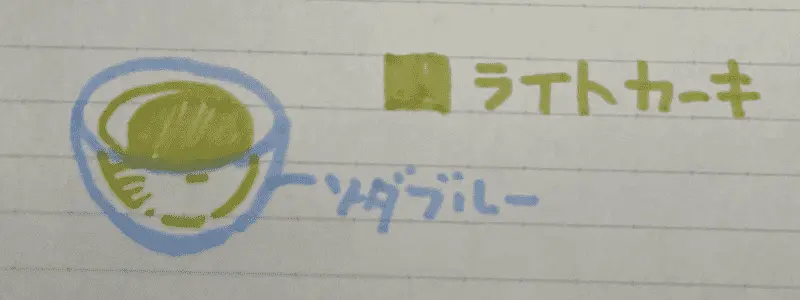 ライトカーキ
ソダブルー